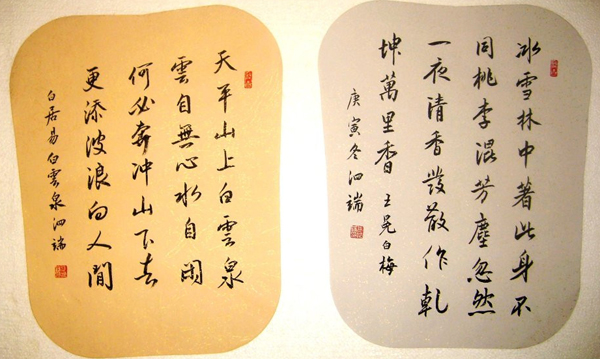 冰雪林中著此身不
同桃李混芳塵忽然
一夜清香發散作乾
坤萬里香 王冕白梅
庚寅冬泗端
天平山上白雲泉
雲自無心水自閑
何必奔冲山下去
更添波浪向人間
白居易白雲泉泗端